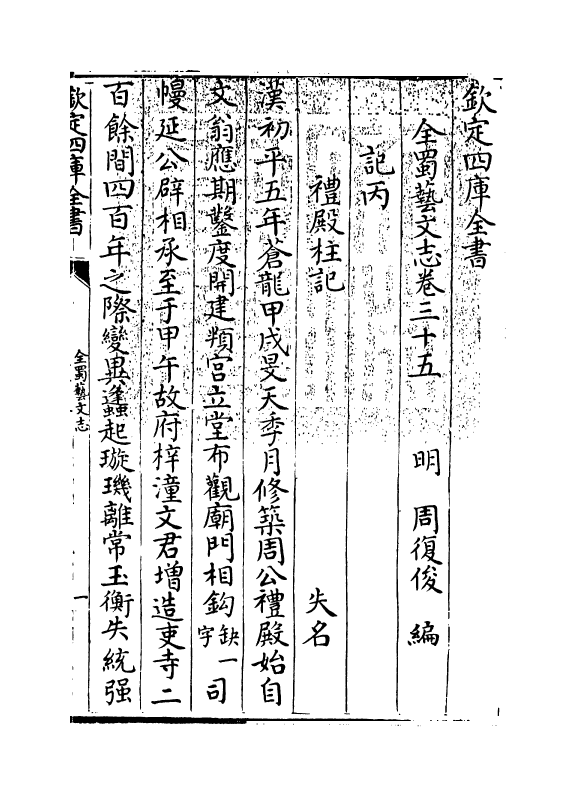 欽定四庫全書
全蜀藝文志卷三十五　明　周復俊　編
記丙
禮殿柱記　失名
漢初平五年蒼龍甲戌旻天季月修築周公禮殿始自
文翁應期鑿度開建頖宮立堂布觀廟門相鈎缺一字司
幔延公辟相承至于甲午故府梓潼文君增造吏寺二
百餘間四百年之際變異蠭起璇璣離常玉衡失統强
欽定四庫全書
全蜀藝文志
一